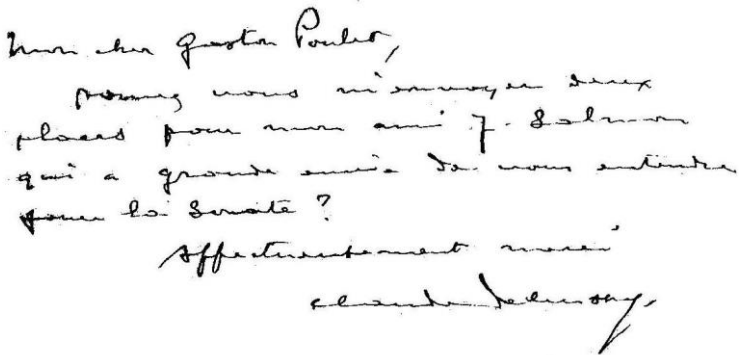 Mon cher Gaston Poulet,
pouvez vous m'envoyer deux
places pour mon ami J. Salmon
qui a grande envie de vous entendre
jouer la Sonate ?
Affectueusement merci
Claude Debussy.